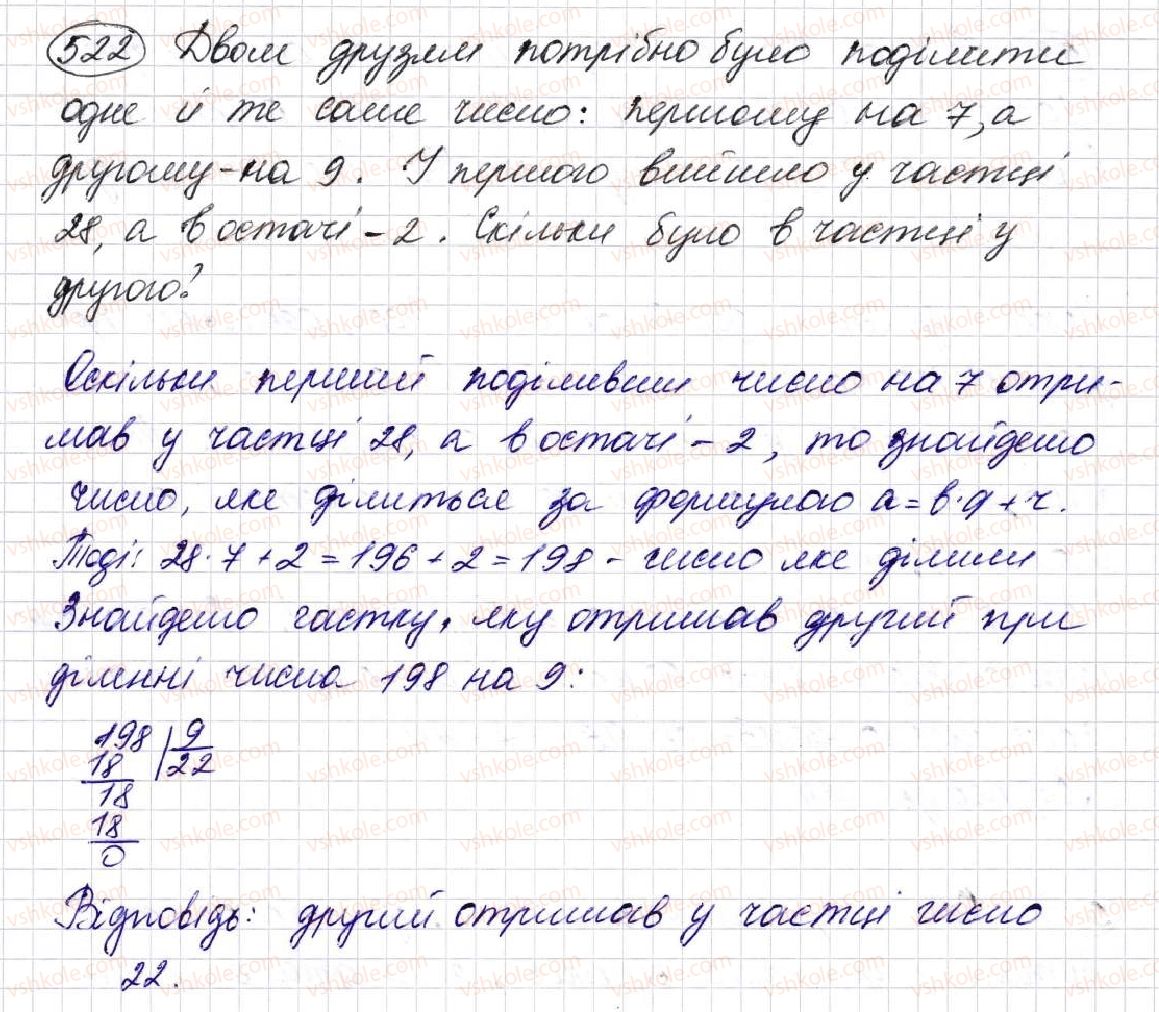 522 Двом друзям потрібно було поділити
одне й те саме число: першому на 7, а
другому - на 9. У першого вийшло у частці
28, а в остачі - 2. Скільки було в частці у
другого?
Оскільки перший поділивши число на 7 отри-
мав у частці 28, а в остачі - 2, то знайдемо
число, яке ділиться за формулою a = b · q + r.
Тоді: 28 · 7 + 2 = 196 + 2 = 198 - число яке ділили
Знайдемо частку, яку отримав другий при
діленні числа 198 на 9:
198 | 9
18 | 22
18
18
0
Відповідь: другий отримав у частці число
22.